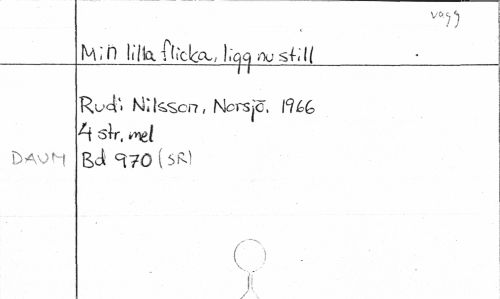 vagg
Min lilla flicka, ligg nu still
Rudi Nilsson, Norsjö. 1966
4 str, mel
DAUM Bd 970 (SR)